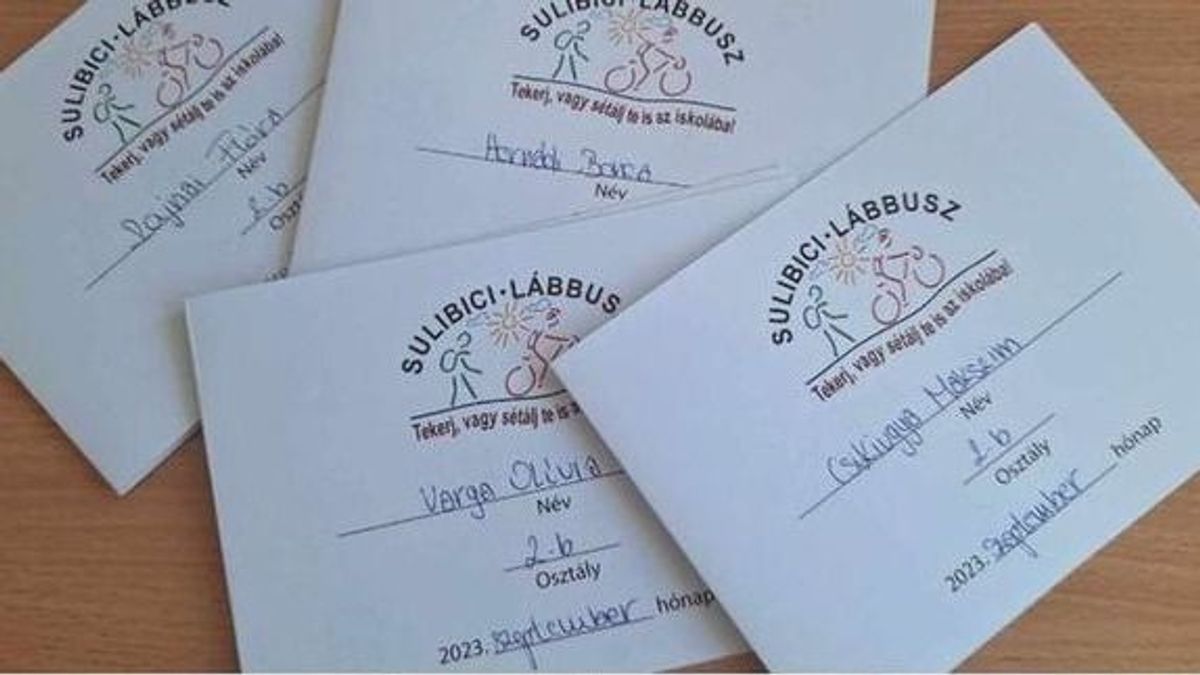 SULIBICI•LÁBBUSZ
Tekerj, vagy sétálj te is az iskolába!
Flóra
Név
2.b
SULIBICI•LÁBBUSZ
Tekerj, vagy sétálj te is az iskolába!
Név
SULIBICI•LÁBBUS
Tekerj, vagy sétálj te is
Varga Olívia
Név
2.b
Osztály
2023. szeptember hónap
SULIBICI•LÁBBUSZ
Tekerj, vagy sétálj te is az iskolába!
Csikugya Makszim
Név
2.b
Osztály
2023. szeptember hónap